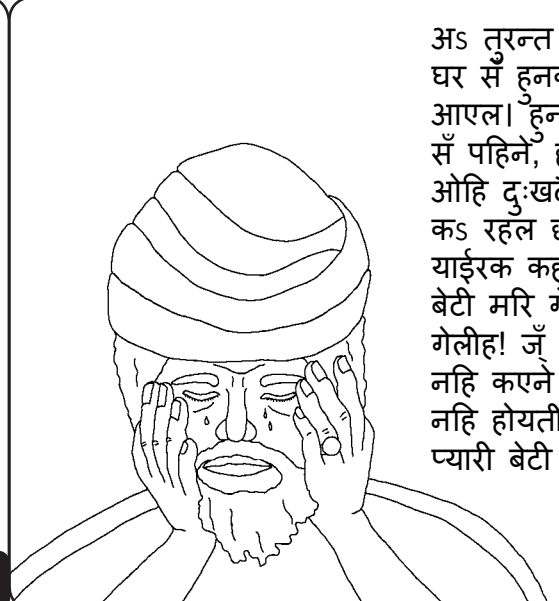 अऽ तुरन्त
घर सँ
आएल।
सँ पहिने,
ओहि
कऽ रहल
याईरक
बेटी मरि
गेलीह! जँ
नहि कएने
नहि होयती
प्यारी बेटी